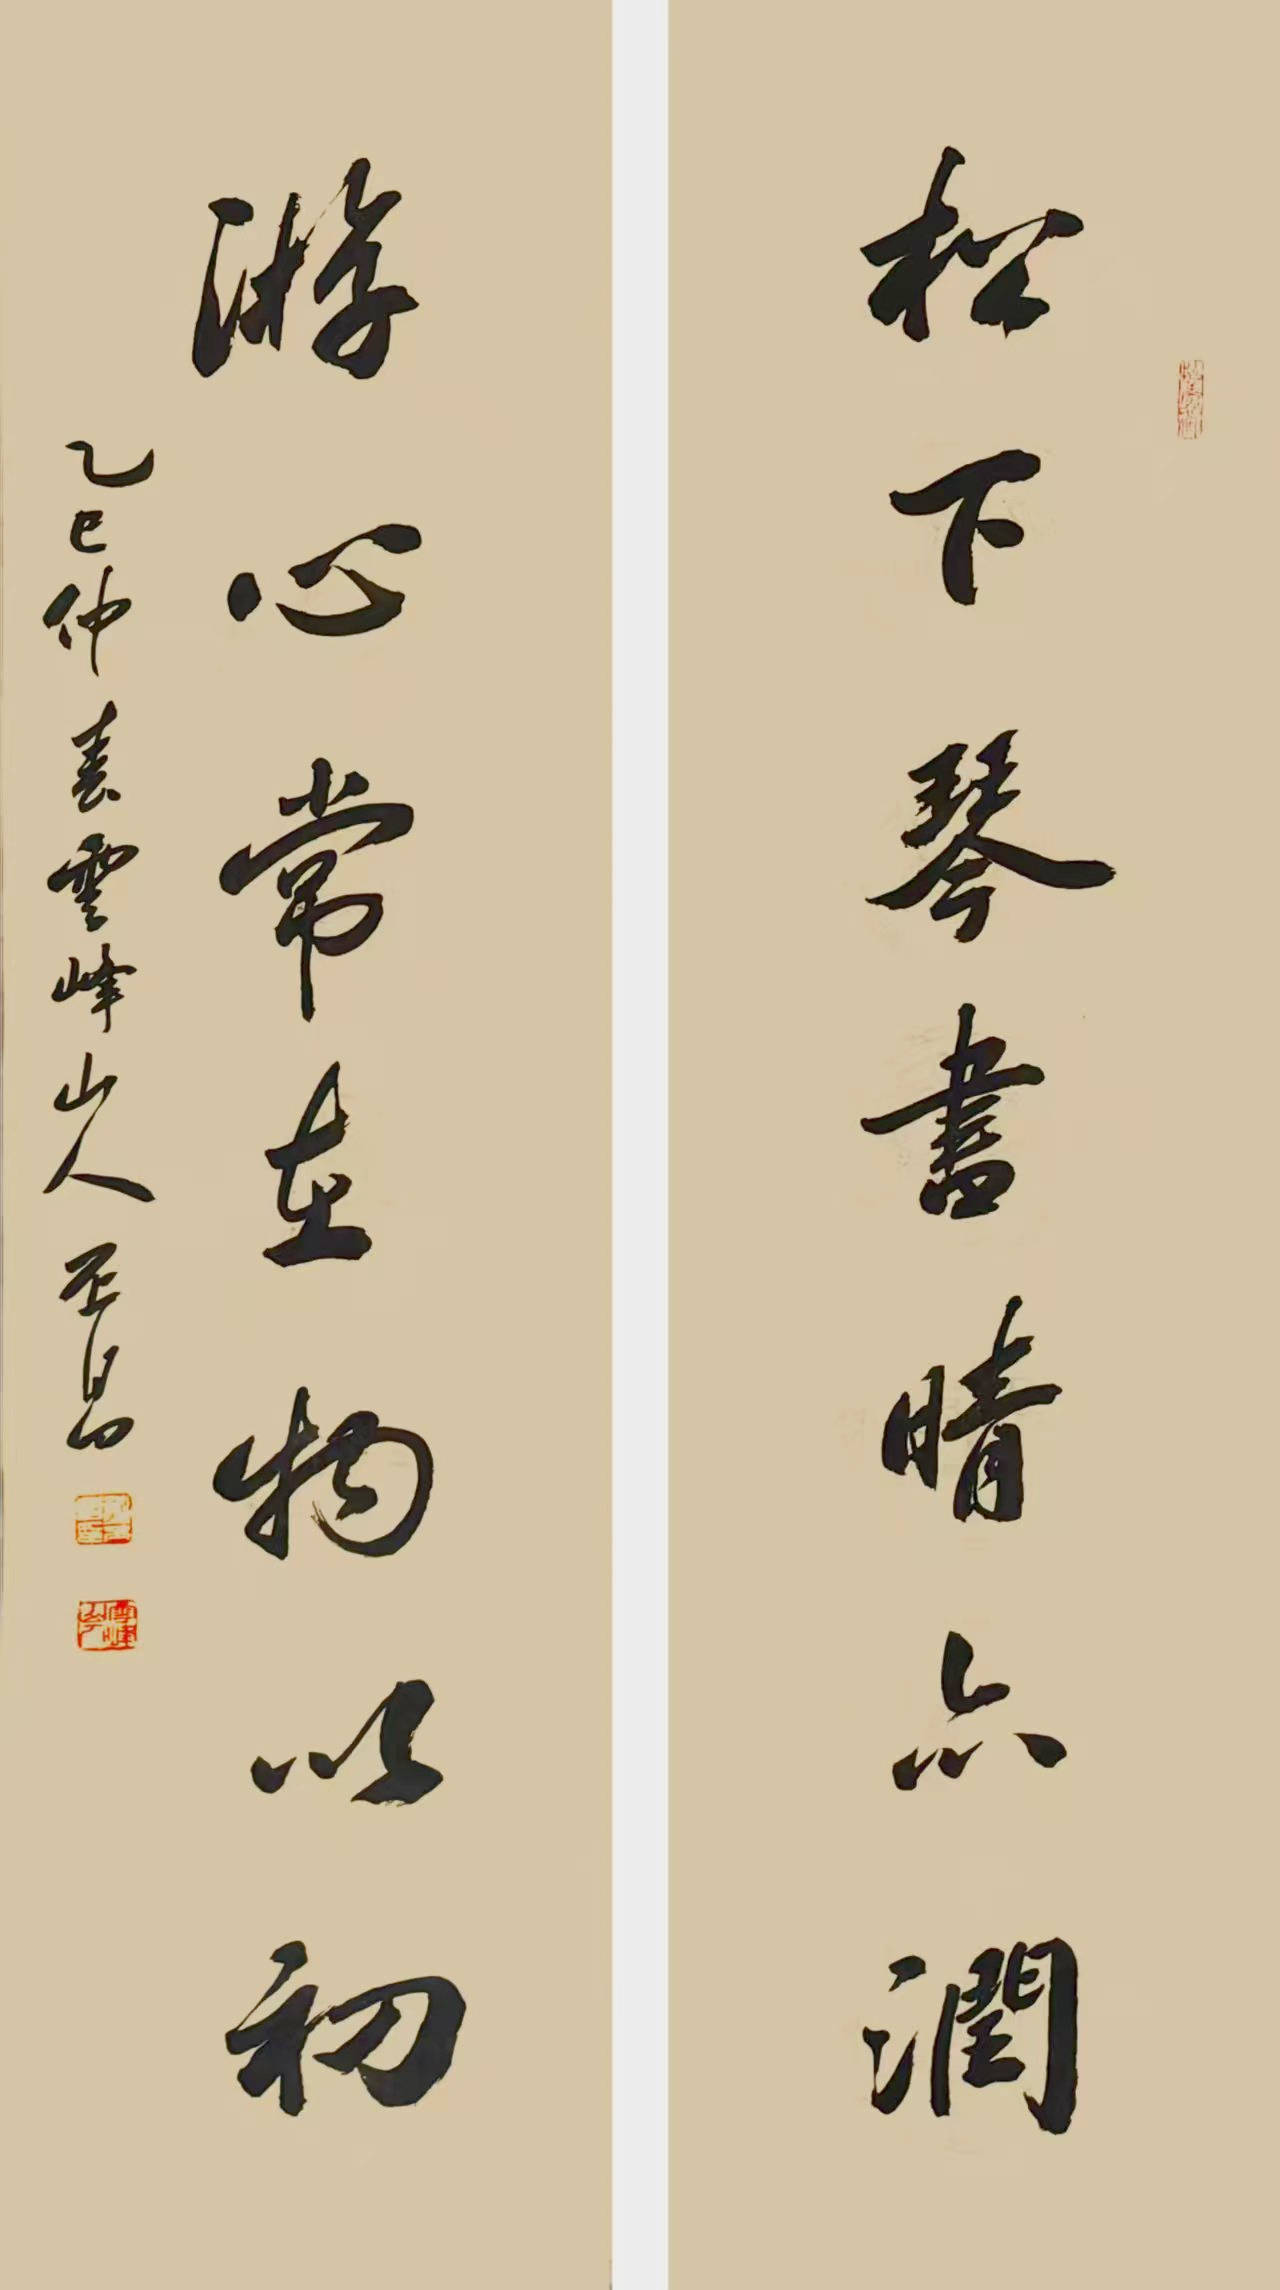 松下琴書晴亦潤
游心常在物以初
乙巳仲春雲峰山人
雲峰山人